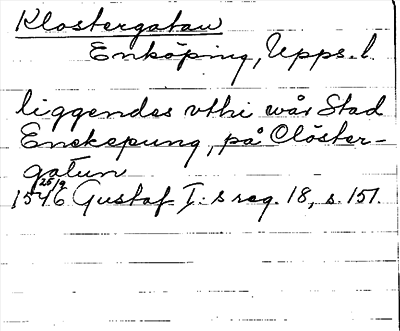 Klostergatan
Enköping, Upps. l.
liggendes vthi wår Stad
Enekepung, på Clöster-
gatun
1546 25/9 Gustaf I:s reg. 18, s. 151.